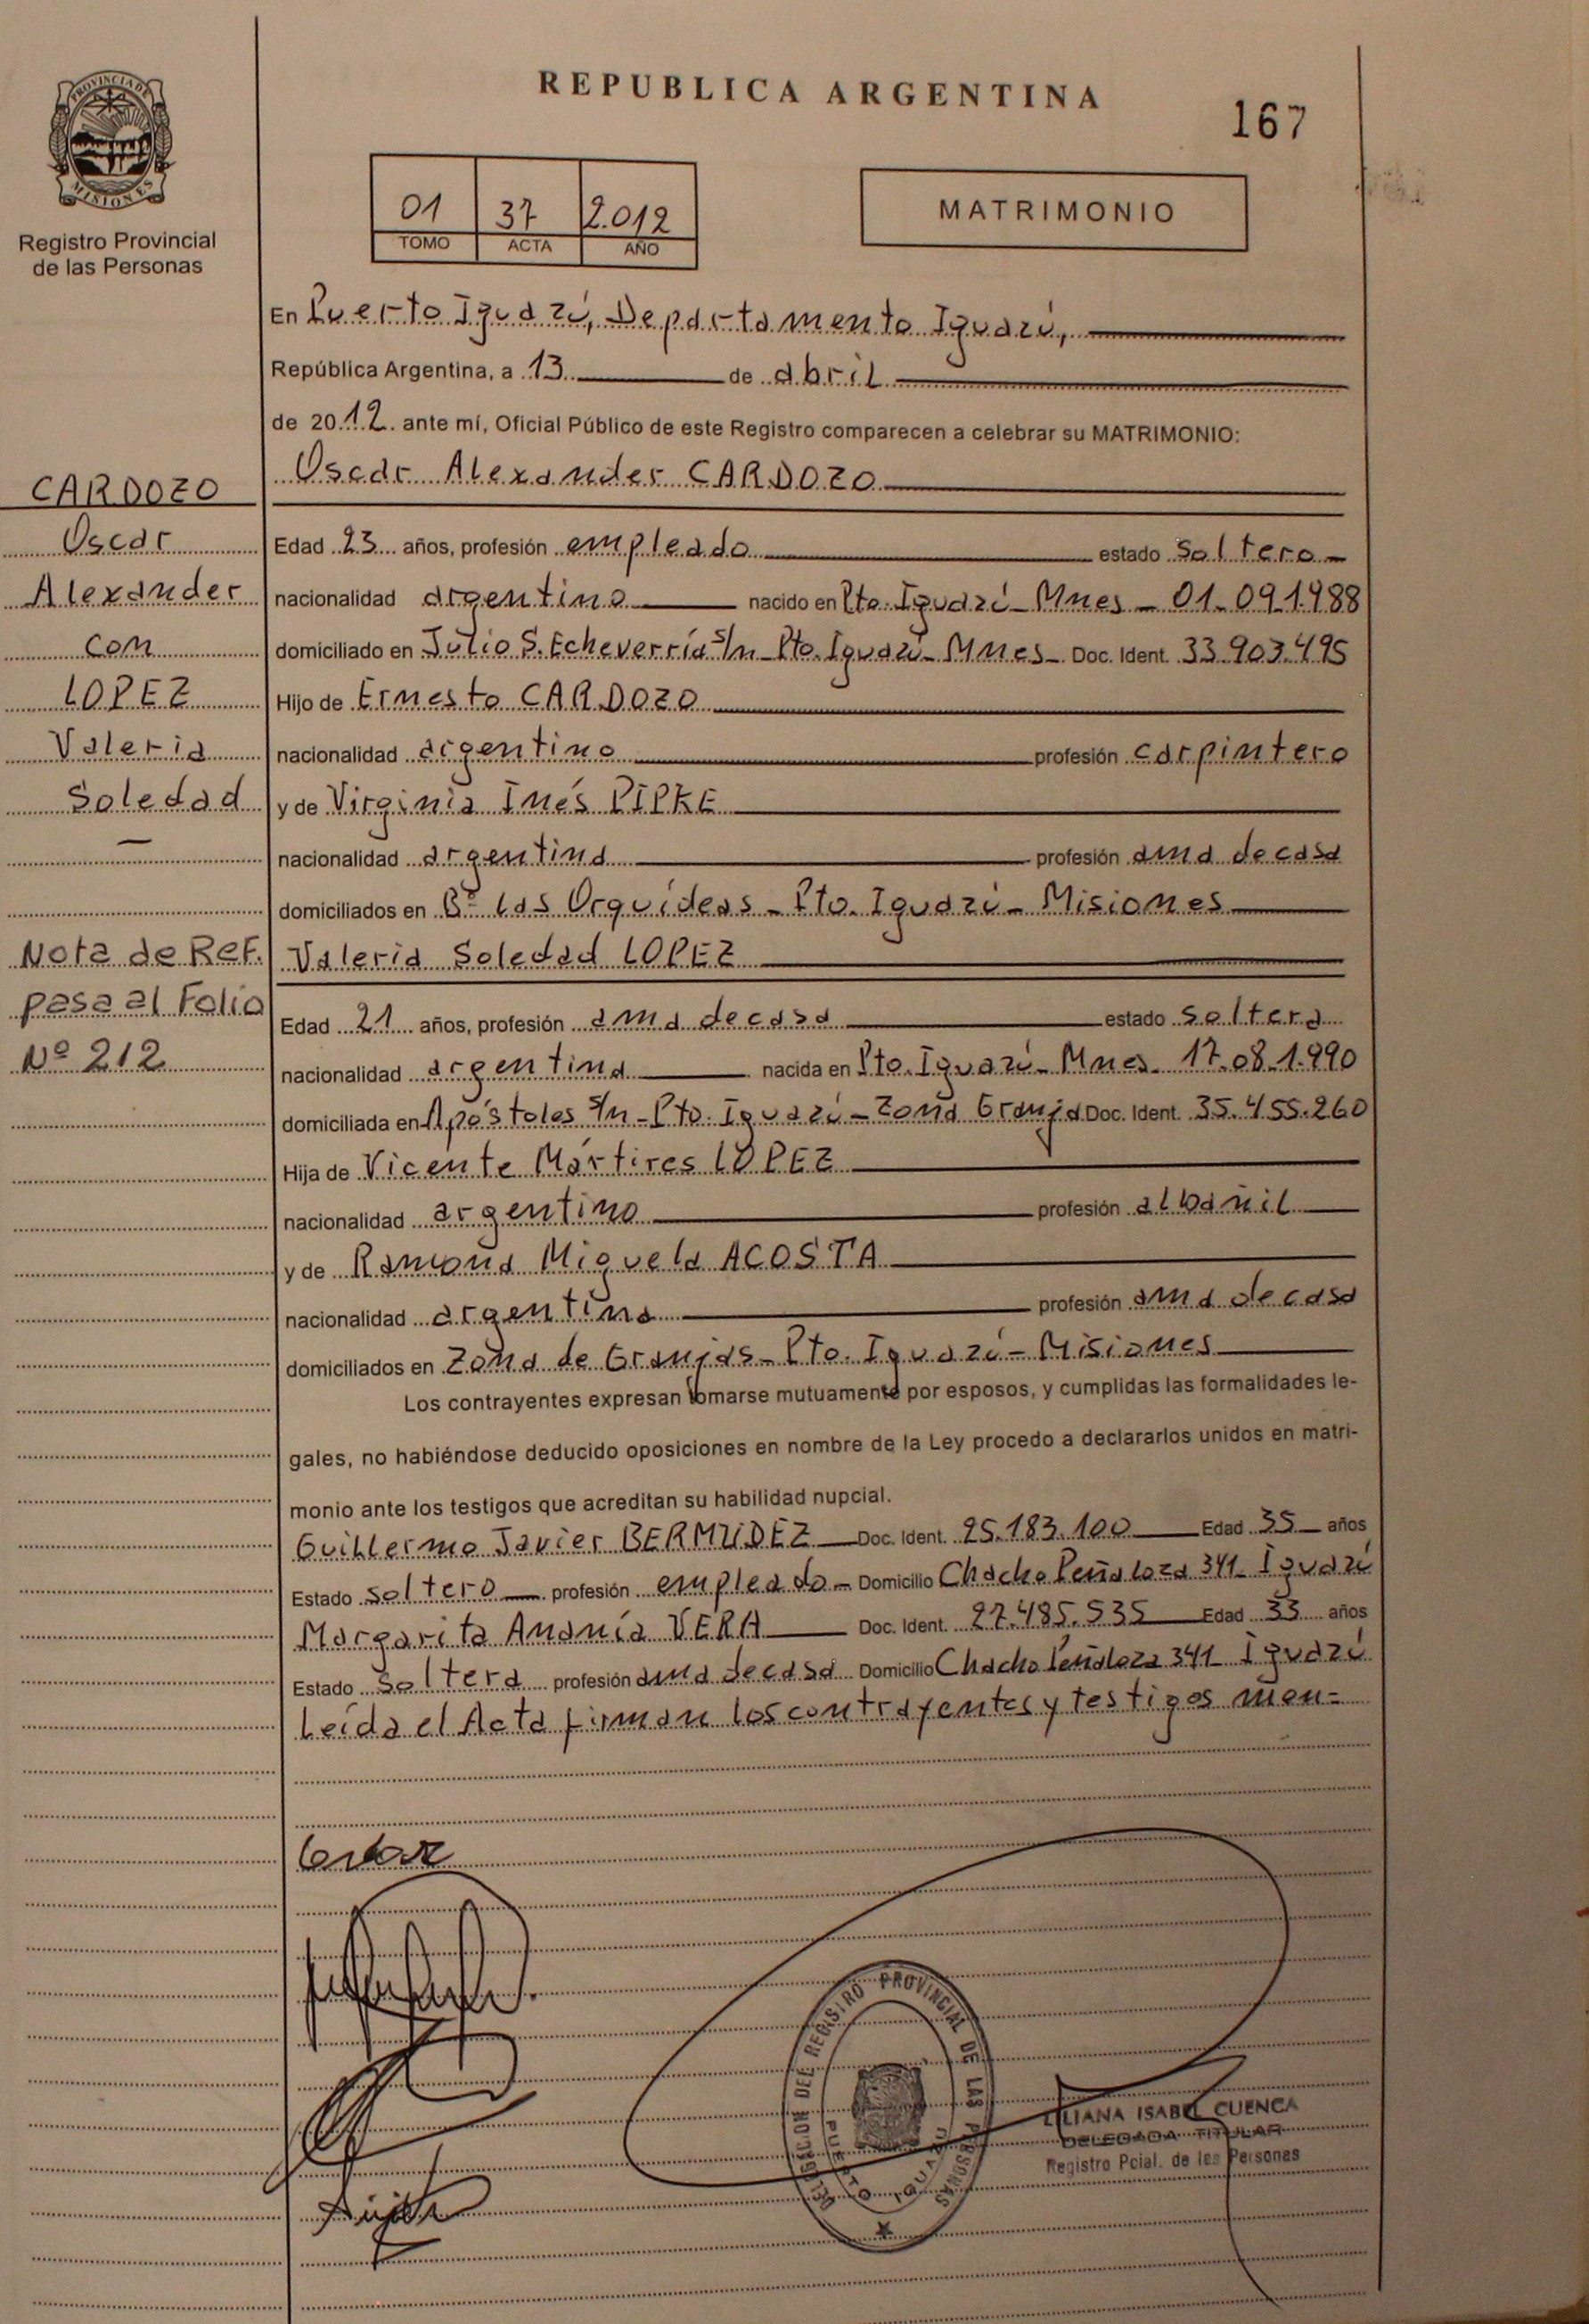 REPUBLICA ARGENTINA
167
PROVINCIA DE
MISIONES
Registro Provincial
de las Personas
01 37 2.012
TOMO ACTA AÑO
MATRIMONIO
En Puerto Iguazú, Departamento Iguazú,
República Argentina, a 13 de abril
de 2012 ante mí, Oficial Público de este Registro comparecen a celebrar su MATRIMONIO:
Oscar Alexander CARDOZO
Edad 23 años, profesión empleado estado soltero
nacionalidad argentino nacido en Pto. Iguazú - Mnes - 01-09-1988
domiciliado en Julio S. Echeverría s/n - Pto. Iguazú - Mnes - Doc. Ident. 33.903.495
Hijo de Ernesto CARDOZO
nacionalidad argentino profesión carpintero
y de Virginia Inés PIPKE
nacionalidad argentina profesión ama de casa
domiciliados en Bº las Orquídeas - Pto. Iguazú - Misiones
Valeria Soledad LOPEZ
Edad 21 años, profesión ama de casa estado soltera
nacionalidad argentina nacida en Pto. Iguazú - Mnes. 17-08-1.990
domiciliada en Apóstoles s/n - Pto. Iguazú - Zona Granja Doc. Ident. 35.455.260
Hija de Vicente Mártires LOPEZ
nacionalidad argentino profesión albañil
y de Ramona Miguela ACOSTA
nacionalidad argentina profesión ama de casa
domiciliados en Zona de Granjas - Pto. Iguazú - Misiones
Los contrayentes expresan tomarse mutuamente por esposos, y cumplidas las formalidades le-
gales, no habiéndose deducido oposiciones en nombre de la Ley procedo a declararlos unidos en matri-
monio ante los testigos que acreditan su habilidad nupcial.
Guillermo Javier BERMUDEZ Doc. Ident. 25.183.100 Edad 35 años
Estado soltero profesión empleado - Domicilio Chacho Peñaloza 341 - Iguazú
Margarita Anania VERA Doc. Ident. 27.485.535 Edad 33 años
Estado soltera profesión ama de casa Domicilio Chacho Peñaloza 341 - Iguazú
Leída el Acta firman los contrayentes y testigos men=
CARDOZO
Oscar
Alexander
con
LOPEZ
Valeria
Soledad
Nota de Ref.
pasa al Folio
Nº 212
DELEGACION DEL REGISTRO PROVINCIAL DE LAS PERSONAS
PUERTO IGUAZU
LILIANA ISABEL CUENCA
DELEGADA TITULAR
Registro Pcial. de las Personas